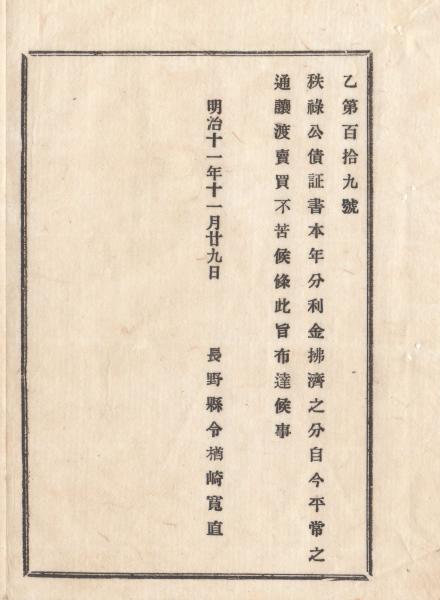 乙第百拾九號
秩祿公債証書本年分利金拂濟之分自今平常之
通讓渡賣買不苦候條此旨布達候事
明治十一年十一月廿九日
長野縣令楢崎寬直